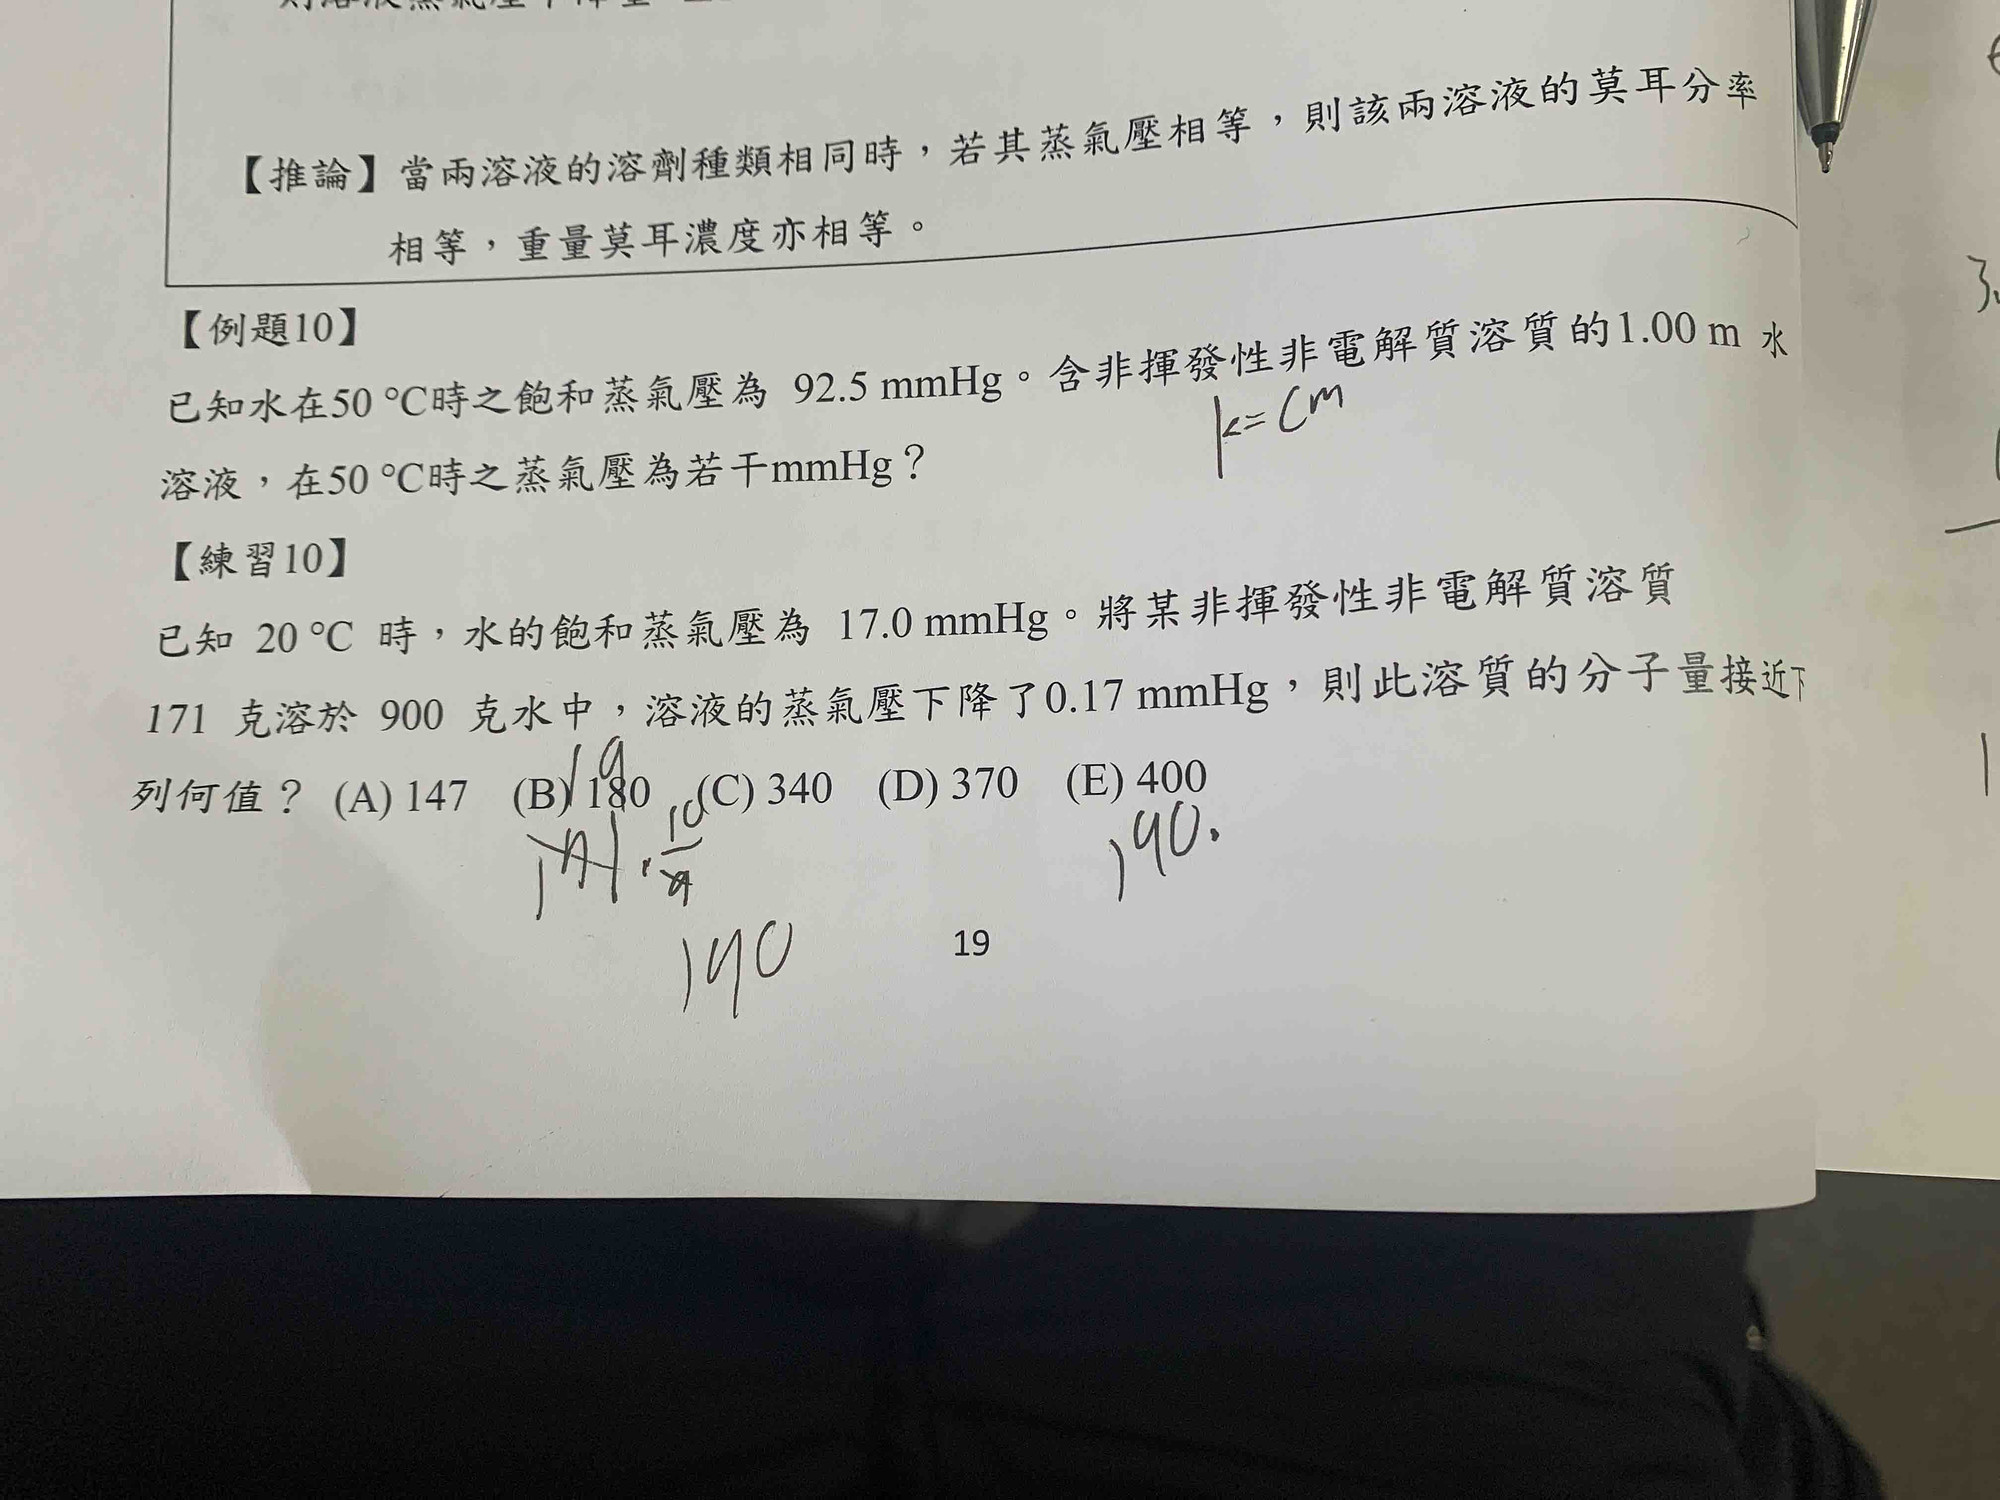 【推論】當兩溶液的溶劑種類相同時，若其蒸氣壓相等，則該兩溶液的莫耳分率
相等，重量莫耳濃度亦相等。
【例題10】
已知水在50 °C時之飽和蒸氣壓為 92.5 mmHg。含非揮發性非電解質溶質的1.00 m 水
k=Cm
溶液，在50 °C時之蒸氣壓為若干mmHg？
【練習10】
已知 20 °C 時，水的飽和蒸氣壓為 17.0 mmHg。將某非揮發性非電解質溶質
171 克溶於 900 克水中，溶液的蒸氣壓下降了0.17 mmHg，則此溶質的分子量接近下
列何值？ (A) 147 (B) 180 (C) 340 (D) 370 (E) 400
19
171·10/9
190.
190
19